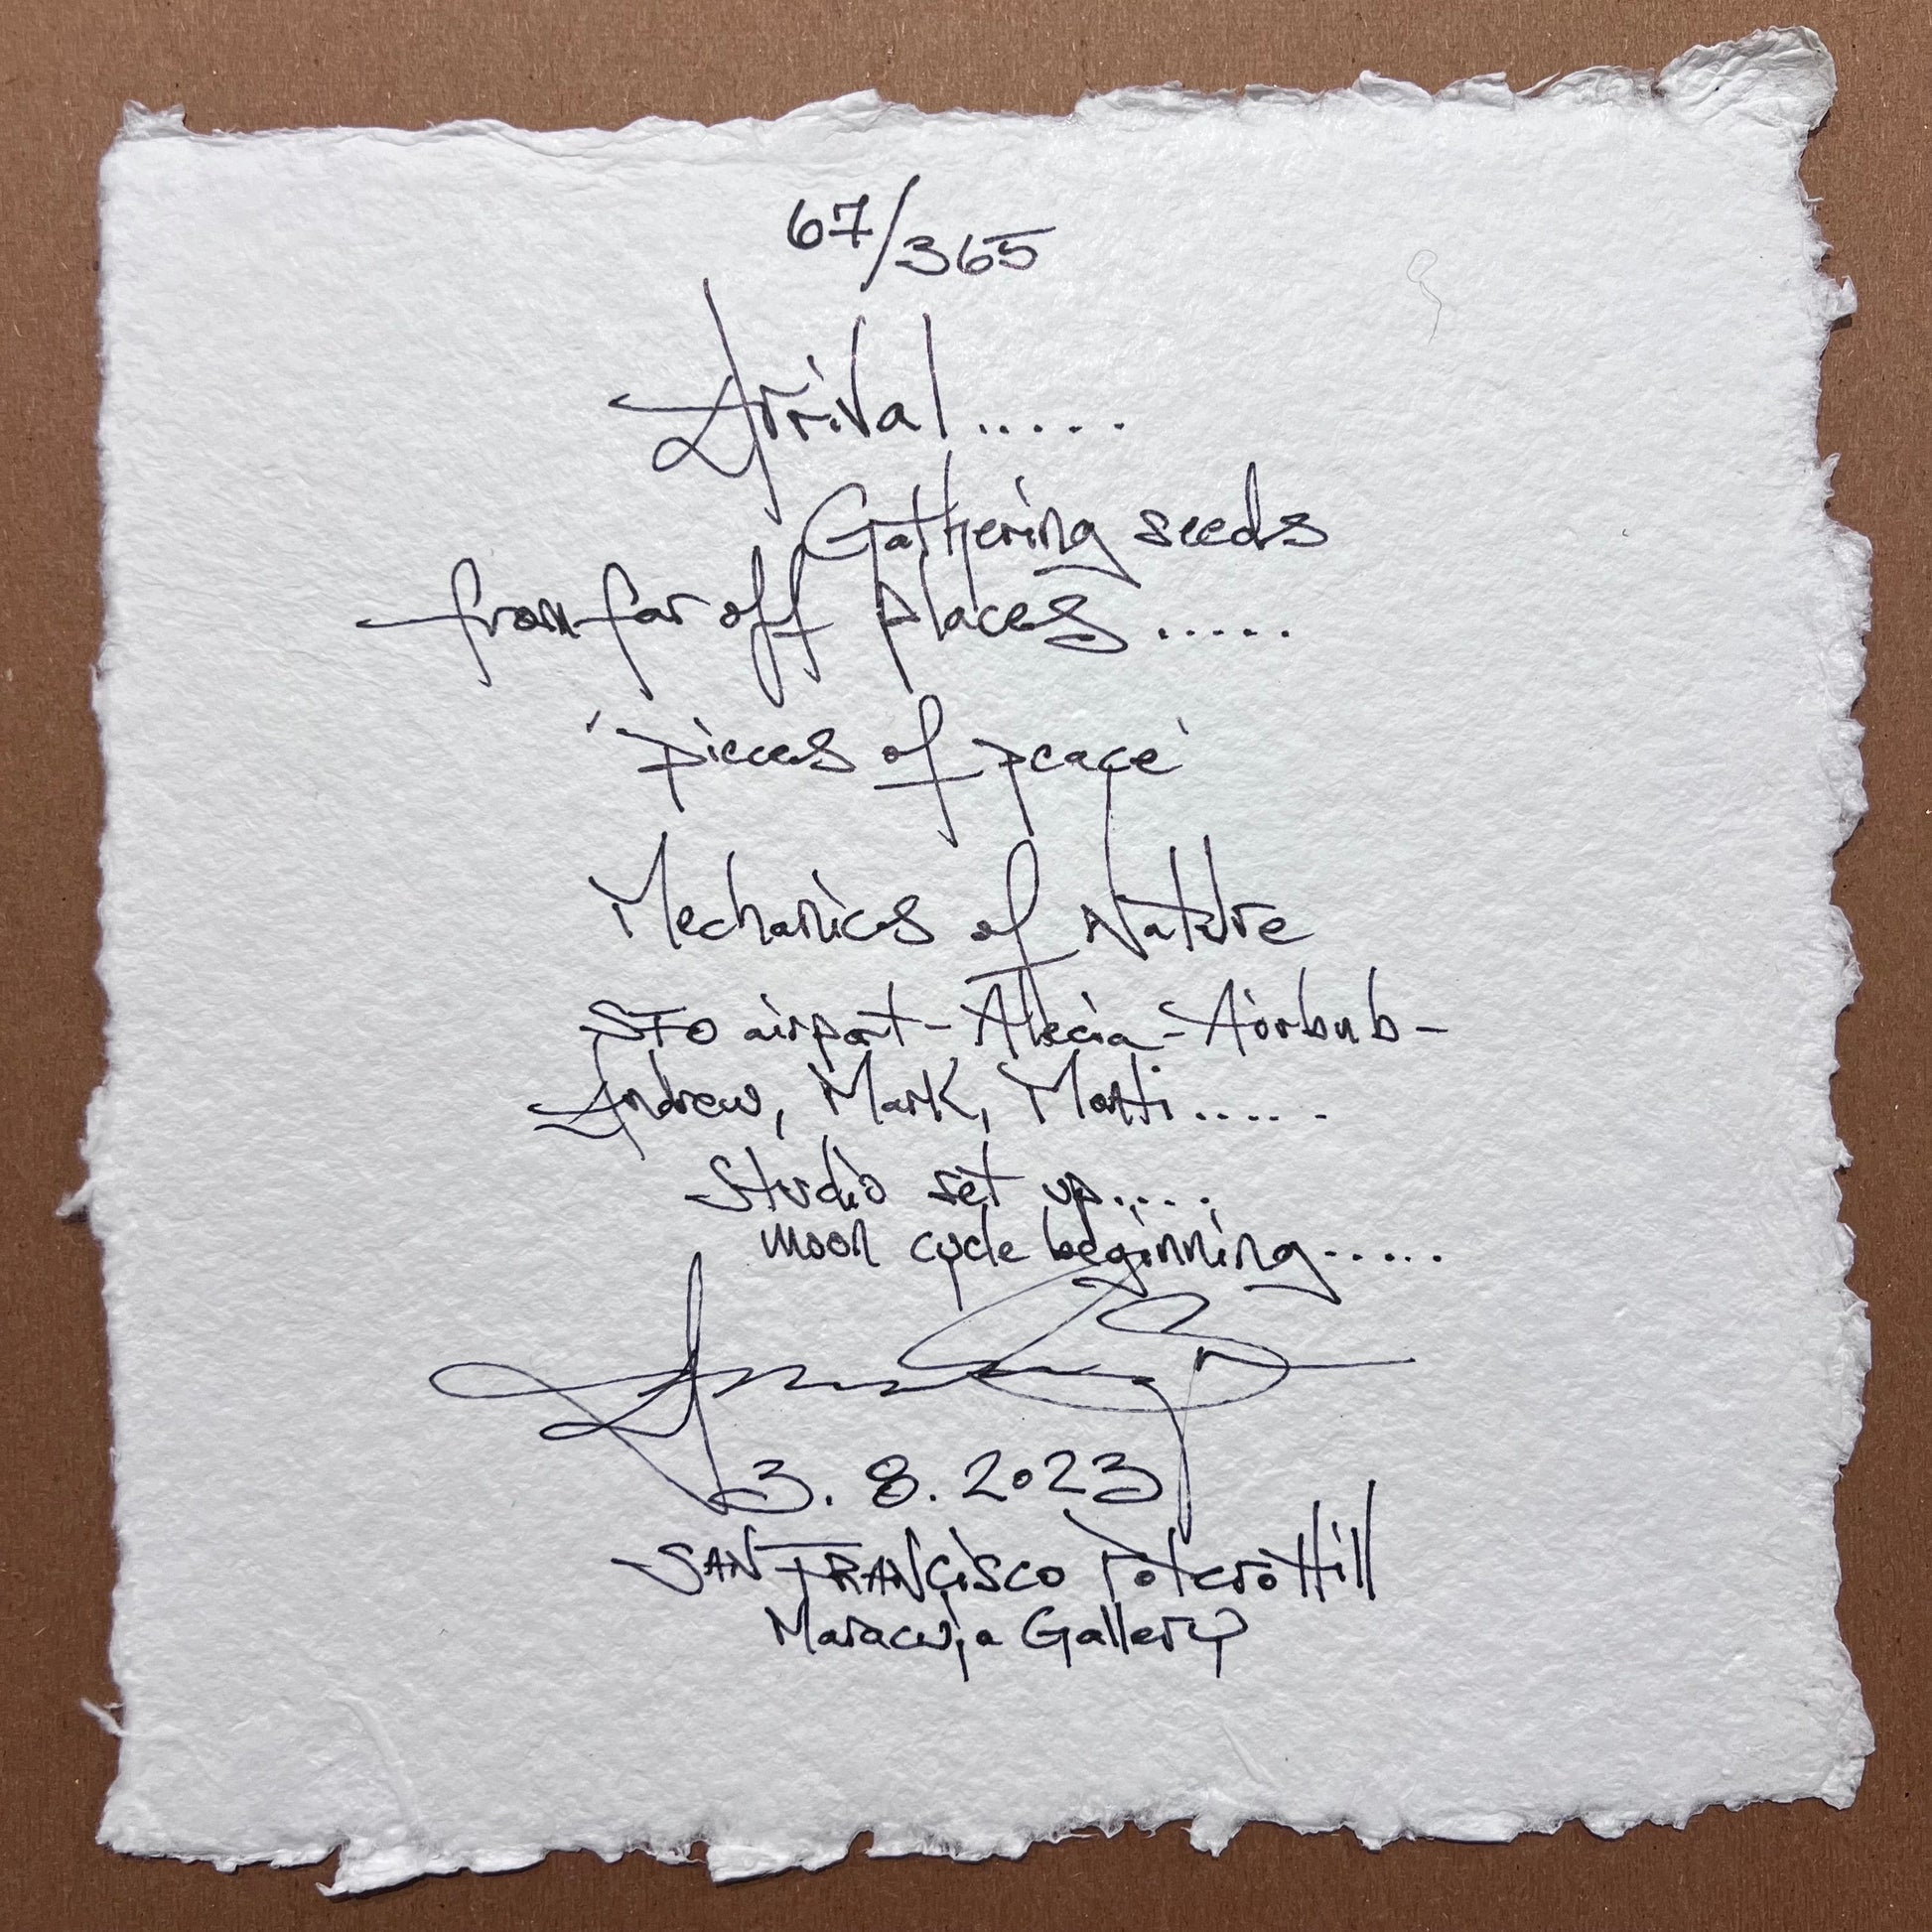 67/365
Arrival.....
Gathering seeds
from far off places.....
'pieces of peace'
Mechanics of Nature
SFO airport - Alecia - Airbnb -
Andrew, Mark, Marti......
Studio set up.....
moon cycle beginning.....
3.8.2023
SAN FRANCISCO Potrero Hill
Maracuja Gallery